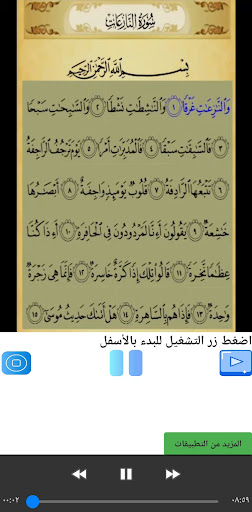 سُورَةُ النَّازِعَاتِ
بِسْمِ اللَّهِ الرَّحْمَٰنِ الرَّحِيمِ
وَالنَّٰزِعَٰتِ غَرْقًا ١ وَالنَّٰشِطَٰتِ نَشْطًا ٢ وَالسَّٰبِحَٰتِ سَبْحًا
٣ فَالسَّٰبِقَٰتِ سَبْقًا ٤ فَالْمُدَبِّرَٰتِ أَمْرًا ٥ يَوْمَ تَرْجُفُ الرَّاجِفَةُ
٦ تَتْبَعُهَا الرَّادِفَةُ ٧ قُلُوبٌ يَوْمَئِذٍ وَاجِفَةٌ ٨ أَبْصَٰرُهَا
خَٰشِعَةٌ ٩ يَقُولُونَ أَءِنَّا لَمَرْدُودُونَ فِي الْحَافِرَةِ ١٠ أَءِذَا كُنَّا
عِظَٰمًا نَّخِرَةً ١١ قَالُوا تِلْكَ إِذًا كَرَّةٌ خَاسِرَةٌ ١٢ فَإِنَّمَا هِيَ زَجْرَةٌ
وَٰحِدَةٌ ١٣ فَإِذَا هُم بِالسَّاهِرَةِ ١٤ هَلْ أَتَىٰكَ حَدِيثُ مُوسَىٰ ١٥
اضغط زر التشغيل للبدء بالأسفل
المزيد من التطبيقات
٠٠:٠٢
٠٨:٥٩